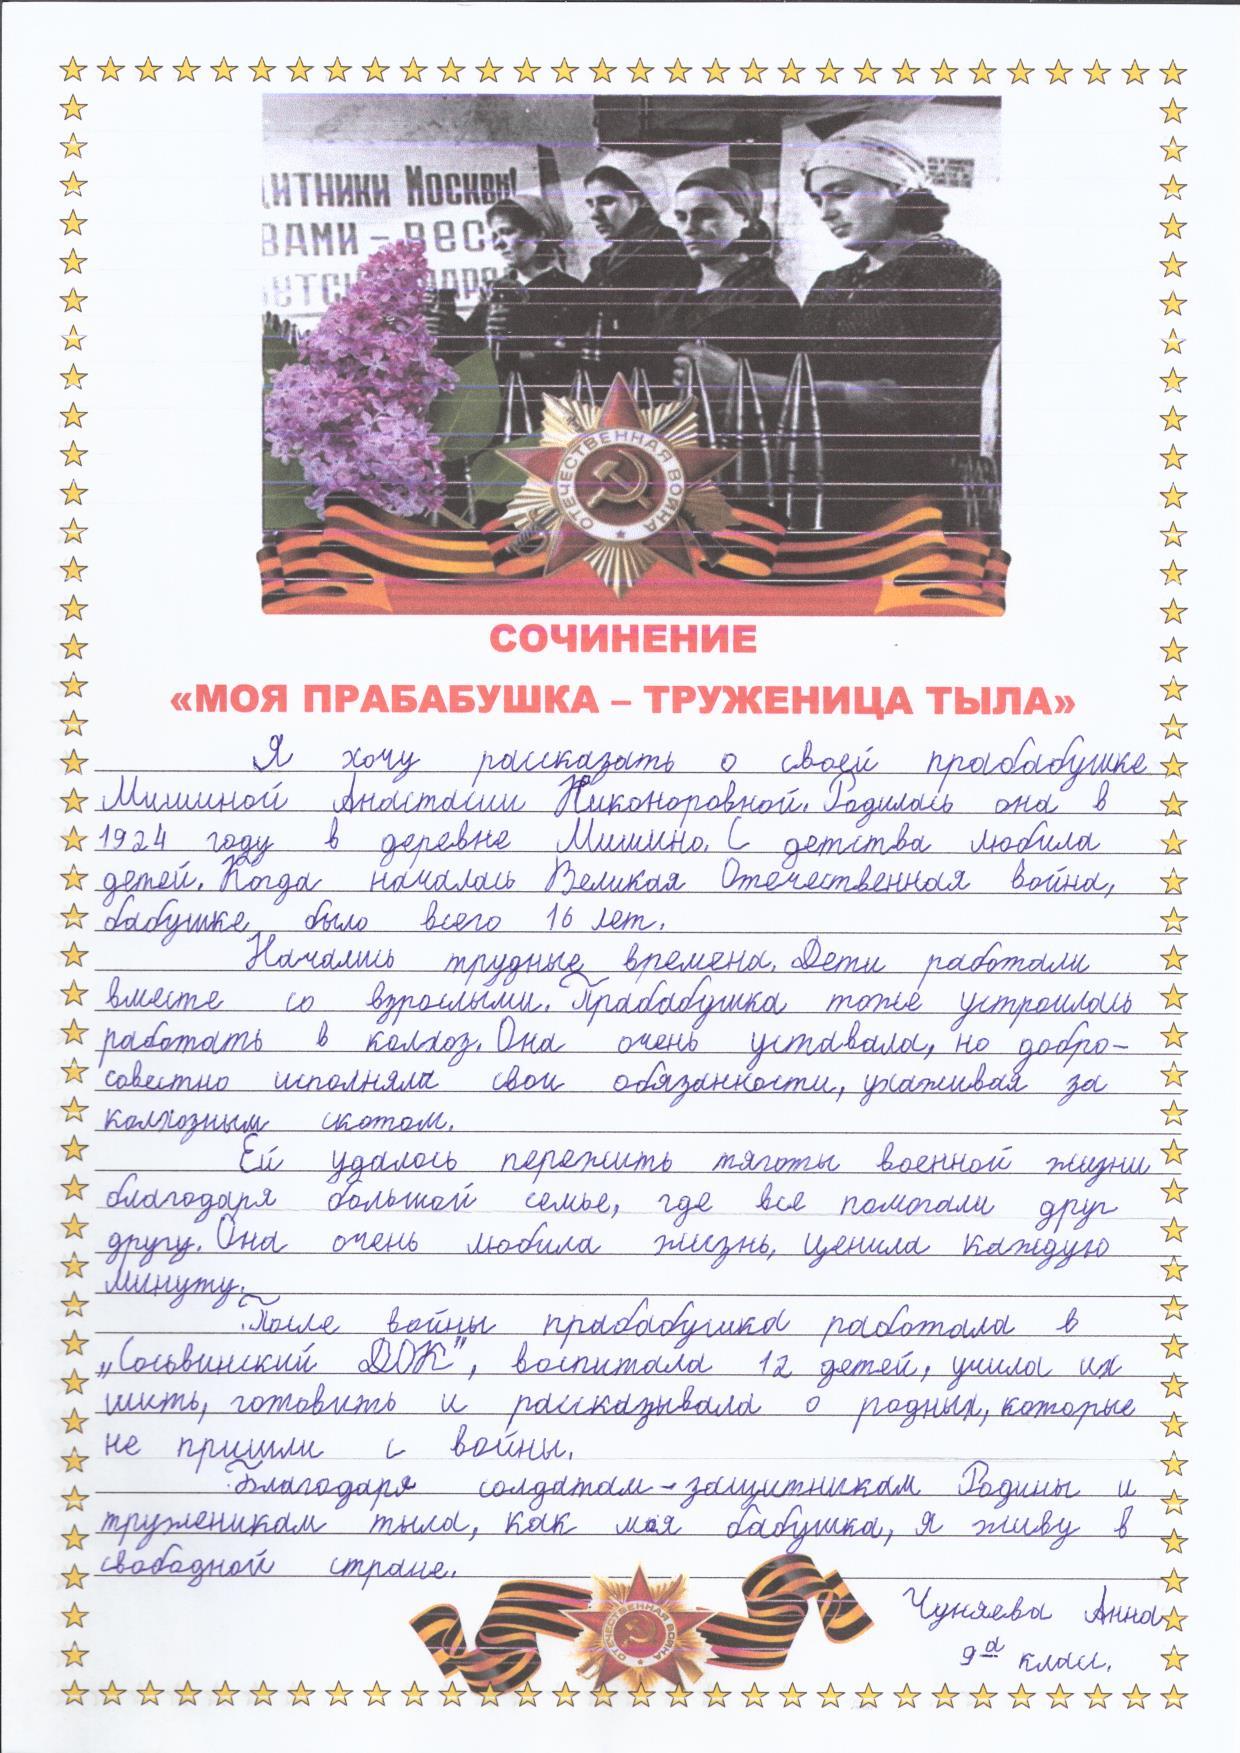 ЩИТНИКИ МОСКВЫ!
ВАМИ – ВЕС
ВЕТСК
ОТЕЧЕСТВЕННАЯ ВОЙНА
СОЧИНЕНИЕ
«МОЯ ПРАБАБУШКА – ТРУЖЕНИЦА ТЫЛА»
Я хочу рассказать о своей прабабушке
Мишиной Анастасии Никоноровной. Родилась она в
1924 году в деревне Мишино. С детства любила
детей. Когда началась Великая Отечественная война,
бабушке было всего 16 лет.
Начались трудные времена. Дети работали
вместе со взрослыми. Прабабушка тоже устроилась
работать в колхоз. Она очень уставала, но добро-
совестно исполняла свои обязанности, ухаживая за
колхозным скотом.
Ей удалось пережить тяготы военной жизни
благодаря большой семье, где все помогали друг
другу. Она очень любила жизнь, ценила каждую
минуту.
После войны прабабушка работала в
„Сосьвинский ДОК", воспитала 12 детей, учила их
шить, готовить и рассказывала о родных, которые
не пришли с войны.
Благодаря солдатам-защитникам Родины и
труженикам тыла, как моя бабушка, я живу в
свободной стране.
ОТЕЧЕСТВЕННАЯ ВОЙНА
Чуняева Анна
9а класс.